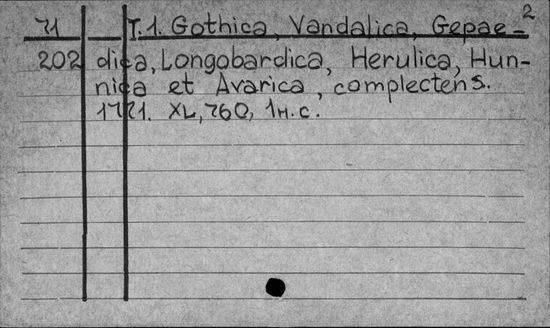 2
71 T.1. Gothica, Vandalica, Gepae-
202 dica, Longobardica, Herulica, Hun-
nica et Avarica, complectens.
1721. XL, 760, 1н.с.